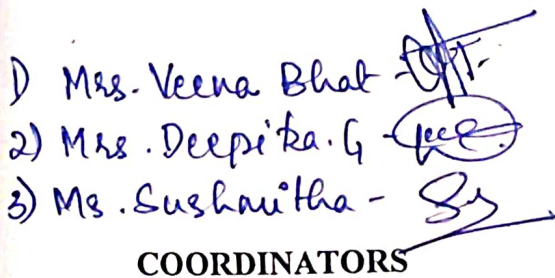 1) Mrs. Veena Bhat -
2) Mrs. Deepika. G -
3) Ms. Sushmitha -
COORDINATORS